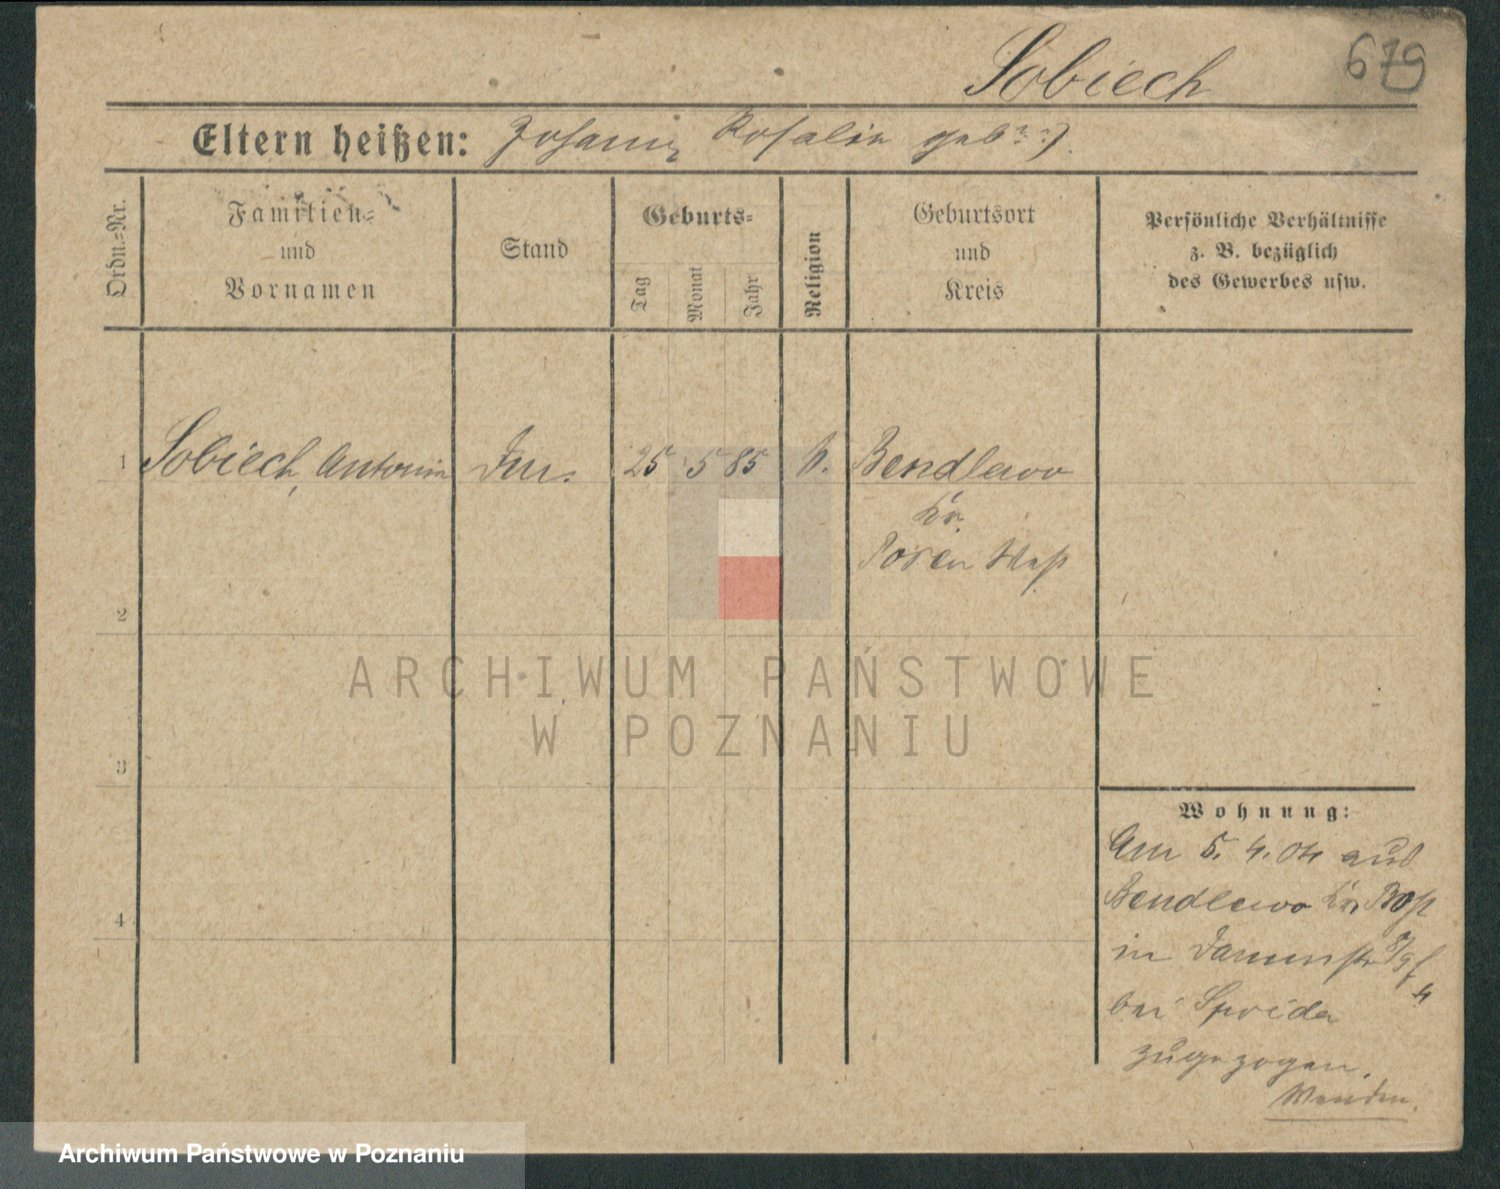 Sobiech
679
Eltern heißen: Johann, Rosalie geb. ? ?
Ordn.-Nr.
Familien-
und
Vornamen
Stand
Geburts-
Tag
Monat
Jahr
Religion
Geburtsort
und
Kreis
Persönliche Verhältnisse
z. B. bezüglich
des Gewerbes usw.
1 Sobiech, Antonin 25 5 85 k. Bendlewo
Kr.
Posen West
2
3
4
Wohnung:
Am 5. 4. 04 aus
Bendlewo Kr. Post
in Dammstr
bei
zugezogen.
Wenden.
ARCHIWUM PAŃSTWOWE
W POZNANIU
Archiwum Państwowe w Poznaniu